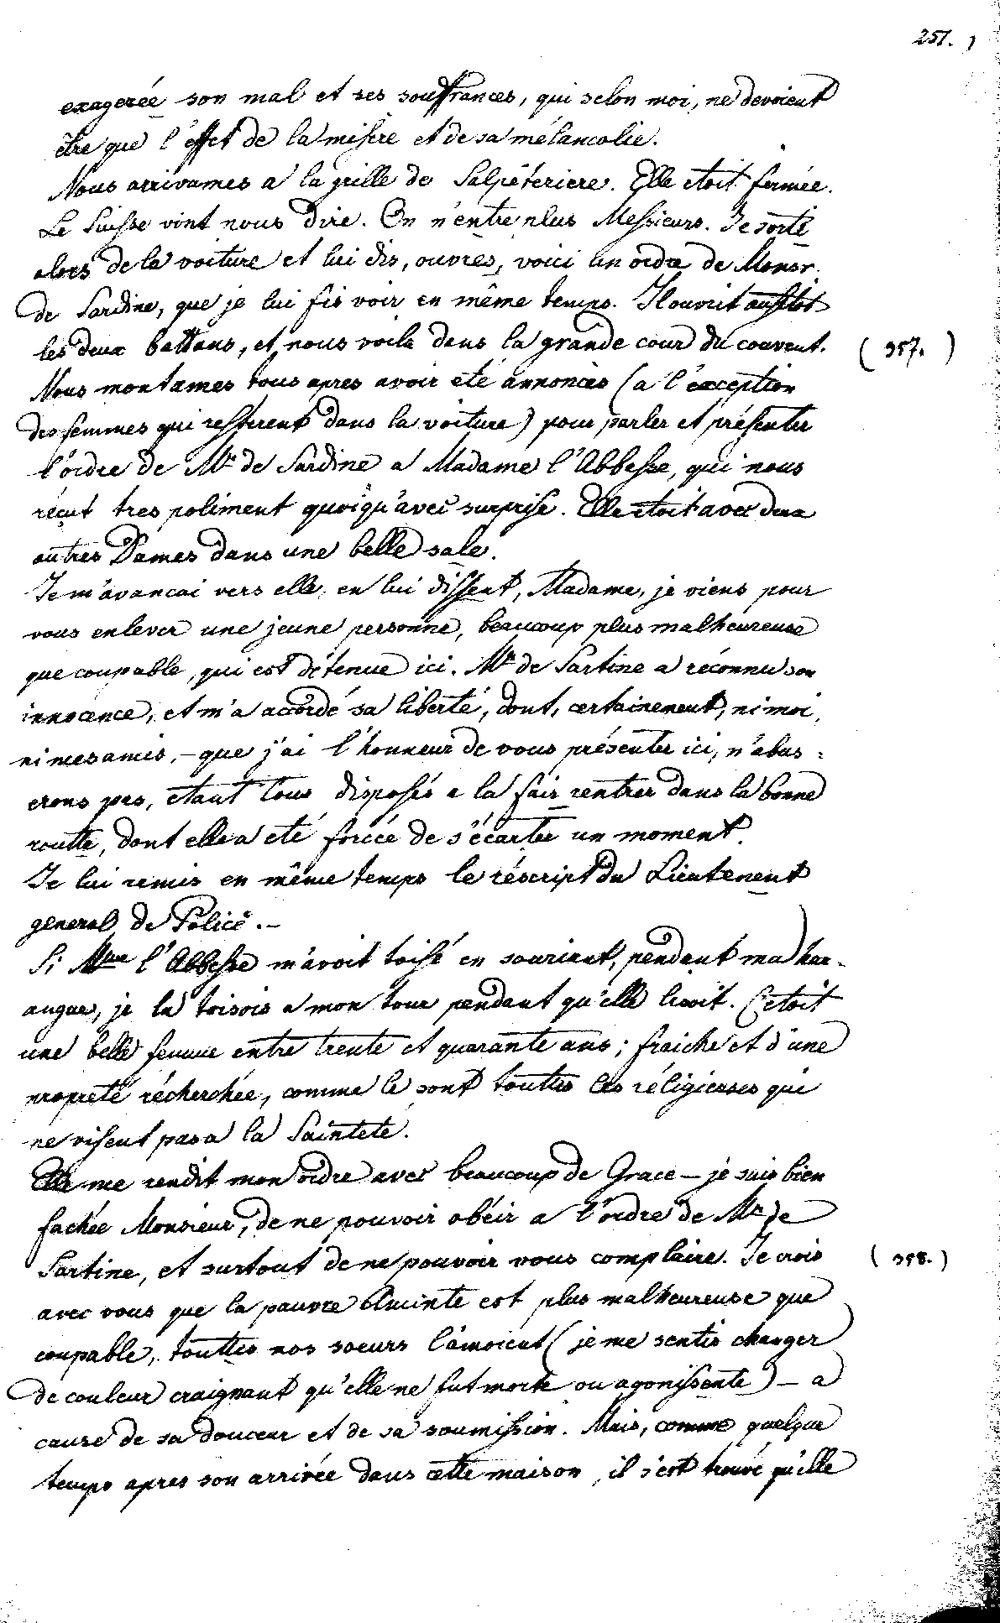 251.
exagerée son mal et ses souffrances, qui selon moi, ne devoient
être que l'effet de la misère et de sa mélancolie.
Nous arrivames a la grille de Salpêteriere. Elle etoit fermée.
Le Suisse vint nous dire. On n'entre plus Messieurs. Je sorti
alors de la voiture et lui dis, ouvres, voici un ordre de Monsr.
de Sardine, que je lui fis voir en même temps. Il ouvrit aussitot
les deux battans, et nous voila dans la grande cour du couvent. (357.)
Nous montames tous apres avoir eté annoncés (a l'exception
des femmes qui resterent dans la voiture) pour parler et présenter
l'ordre de Mr. de Sardine a Madame l'Abbesse, qui nous
réçut tres poliment quoiqu'avec surprise. Elle etoit avec deux
autres Dames dans une belle sale.
Je m'avancai vers elle, en lui dissent, Madame, je viens pour
vous enlever une jeune personne, beaucoup plus malheureuse
que coupable, qui est détenue ici. Mr. de Sartine a réconnu son
innocence, et m'a accordé sa liberté, dont, certainement, ni moi,
ni mes amis, - que j'ai l'honneur de vous présenter ici, n'abus=
erons pas, etant tous disposés a la fair rentrer dans la bonne
routte, dont elle a eté forcée de s'écarter un moment.
Je lui remis en même temps le réscript du Lieutenent
general de Police. -
Si Mme l'Abbesse m'avoit toisé en souriant, pendant ma har-
angue, je la toisois a mon tour pendant qu'elle lisoit. C'etoit
une belle femme entre trente et quarante ans; fraiche et d'une
propreté récherchée, comme le sont touttes les réligieuses qui
ne visent pas a la Saintete.
Elle me rendit mon ordre avec beaucoup de Grace - je suis bien
fachée Monsieur, de ne pouvoir obéir a l'ordre de Mr. de
Sartine, et surtout de ne pouvoir vous complaire. Je crois (358.)
avec vous que la pauvre Aminte est plus malheureuse que
coupable, touttes nos soeurs l'amoient (je me sentis changer
de couleur craignant qu'elle ne fut morte ou agonissente) - a
cause de sa douceur et de sa soumission. Mais, comme quelque
temps apres son arrivée dans cette maison, il s'est trouvé qu'elle